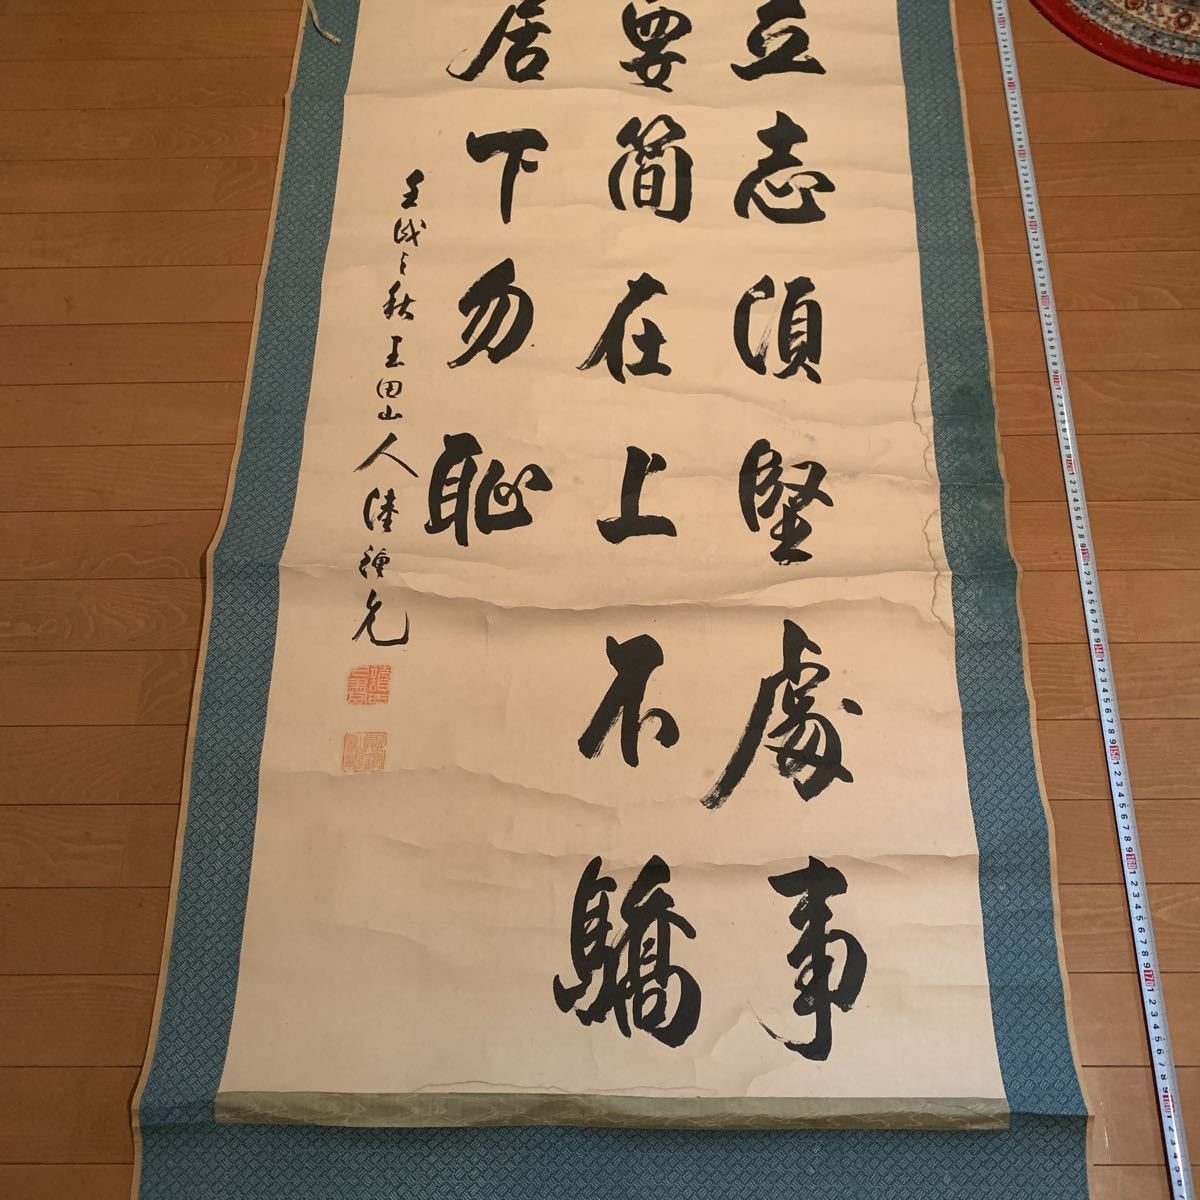 立志須堅處事
要簡在上不驕
居下勿恥
壬戌之秋玉田山人陸鍾允